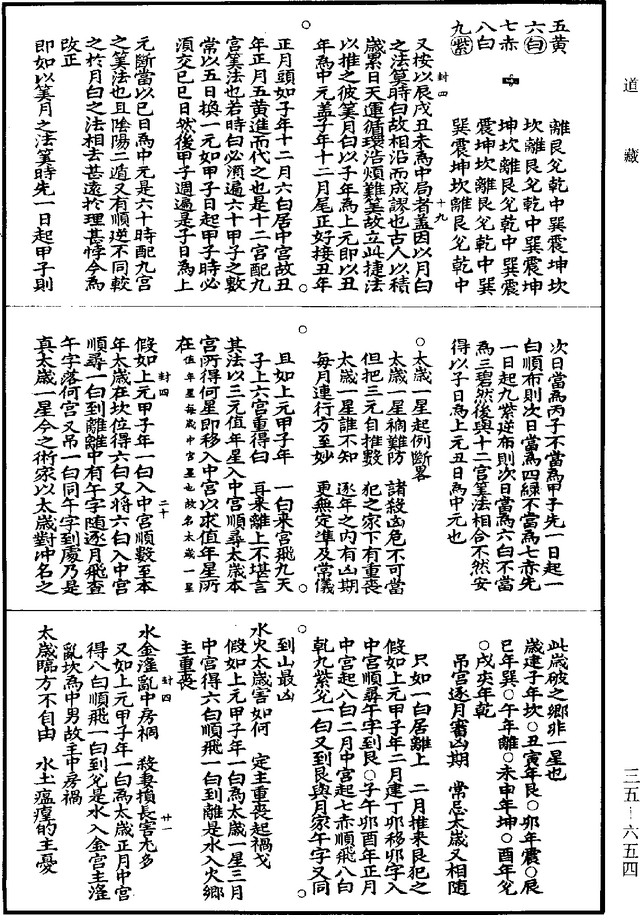 道藏
五黄　離艮兌乾中巽震坤坎
六白　坎離艮兌乾中巽震坤
七赤　坤坎離艮兌乾中巽震
八白　震坤坎離艮兌乾中巽
九紫　巽震坤坎離艮兌乾中
封四　十九
又按以辰戌丑未為中局者蓋因以月白
之法筭時白故相沿而成謬也古人以積
歲累日天運循環浩煩難筭故立此捷法
以推之彼筭月白以子年為上元即以丑
年為中元蓋子年十二月尾正好接丑年
正月頭如子年十二月六白居中宮故丑
年正月五黄進而代之也是十二宮配九
宮筭法也若時白必須遍六十甲子之數
常以五日換一元如甲子日起甲子時必
須交巳巳日然後甲子週遍是子日為上
元斷當以巳日為中元是六十時配九宮
之筭法也且陰陽二遁又有順逆不同較
之於月白之法相去甚遠於理甚悖今為
改正
即如以筭月之法筭時先一日起甲子則
次日當為丙子不當為甲子先一日起一
白順布則次日當為四緑不當為七赤先
一日起九紫逆布則次日當為六白不當
為三碧然後與十二宮筭法相合不然安
得以子日為上元丑日為中元也
○太歲一星起例斷畧
太歲一星禍難防　諸殺凶危不可當
但把三元自推數　犯之家下有重喪
太歲一星誰不知　逐年之内有凶期
每月連行方至妙　更無定準及常儀
且如上元甲子年　一白來宮飛九天
子上六宮重得白　再來離上不堪言
其法以三元值年星入中宮順尋太歲本
宮所得何星即移入中宮以求值年星所
在值年星每歲中宮星也故名太歲一星
封四　二十
假如上元甲子年一白入中宮順數至本
年太歲在坎位得六白又將六白入中宮
順尋一白到離離中有午字随逐月飛查
午字落何宮又吊一白同午字到處乃是
真太歲一星今之術家以太歲對冲名之
此歲破之鄉非一星也
歲建子年坎○丑寅年艮○卯年震○辰
巳年巽○午年離○未申年坤○酉年兌
○戌亥年乾
吊宮逐月審凶期　常忌太歲又相随
只如一白居離上　二月推来艮犯之
假如上元甲子年二月建丁卯移卯字入
中宮順尋午字到艮○子午卯酉年正月
中宮起八白二月中宮起七赤順飛八白
乾九紫兌一白又到艮與月家午字又同
到山最凶
水火太歲害如何　定主重喪起禍戈
假如上元甲子年一白為太歲一星三月
中宮得六白順飛一白到離是水入火鄉
主重喪
封四　廿一
水金滛亂中房禍　殺妻損長害尤多
又如上元甲子年一白為太歲正月中宮
得八白順飛一白到兌是水入金宮主滛
亂坎為中男故主中房禍
太歲臨方不自由　水土瘟㾮的主憂
三五—六五四